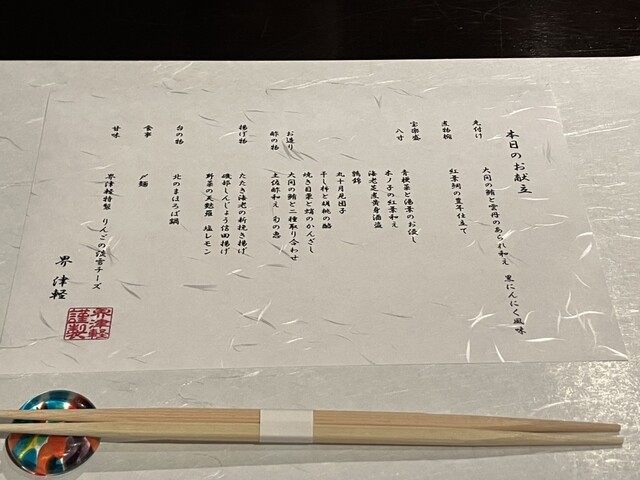 本日のお献立
先付け
大間の鮪と雲丹のあられ和え 黒にんにく風味
煮物椀
紅葉鯛の豊年仕立て
宝楽盛
八寸
青梗菜と湯葉のお浸し
木ノ子の紅葉和え
海老芝煮黄身酒盗
鶉錦
九十月見団子
干し柿と胡桃の酪
焼き目栗と蛸のかんざし
お造り
大間の鮪と二種取り合わせ
酢の物
土佐酢和え 旬の恵
揚げ物
たたき海老の新挽き揚げ
磯部しんじょう信田揚げ
野菜の天麩羅 塩レモン
台の物
北のまほろば鍋
食事
〆麺
甘味
界津軽特製 りんごの淡雪チーズ
界 津軽
界津軽
謹製